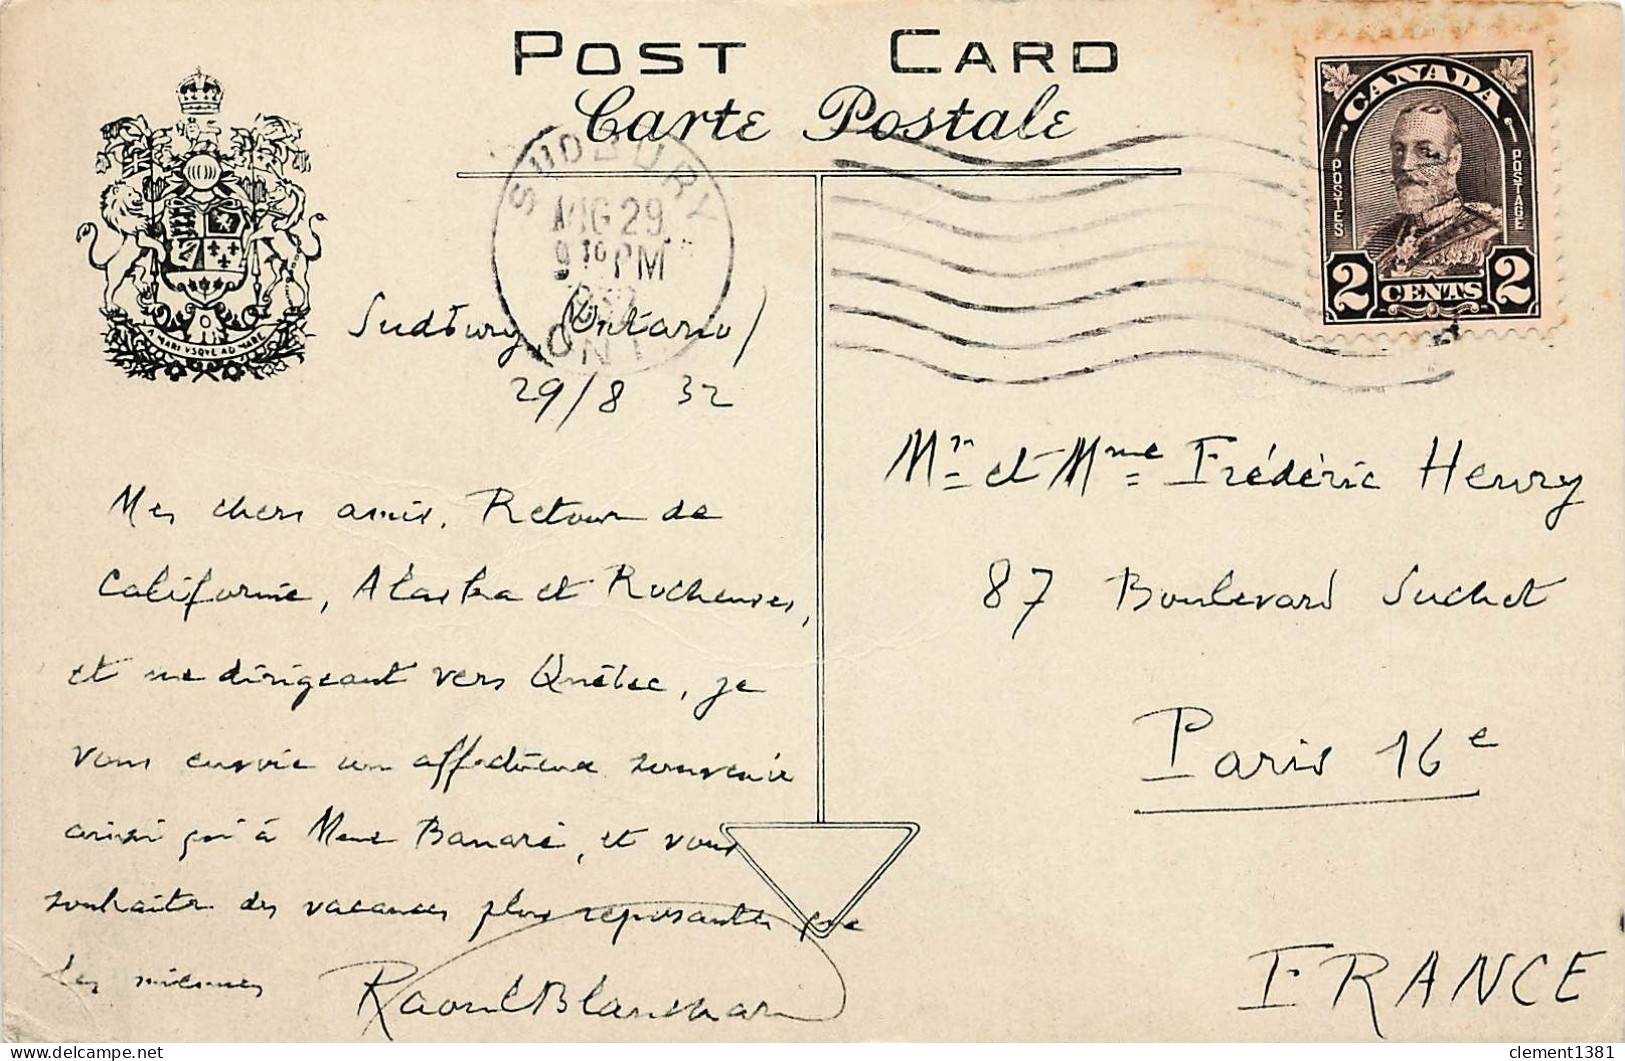 POST CARD
Carte Postale
CANADA
POSTES
POSTAGE
2 CENTS 2
SUDBURY
AUG 29
9 30 PM
1932
ONT.
A MARI VSQVE AD MARE
Sudbury (Ontario)
29/8 32
Mes chers amis. Retour de
Californie, Alaska et Rocheuses,
et me dirigeant vers Québec, je
vous envoie un affectueux souvenir
ainsi qu'à Mme Banaré, et vous
souhaite des vacances plus reposantes que
les miennes
Raoul Blanchard
Mr et Mme Frédéric Henry
87 Boulevard Suchet
Paris 16e
FRANCE
clement1381